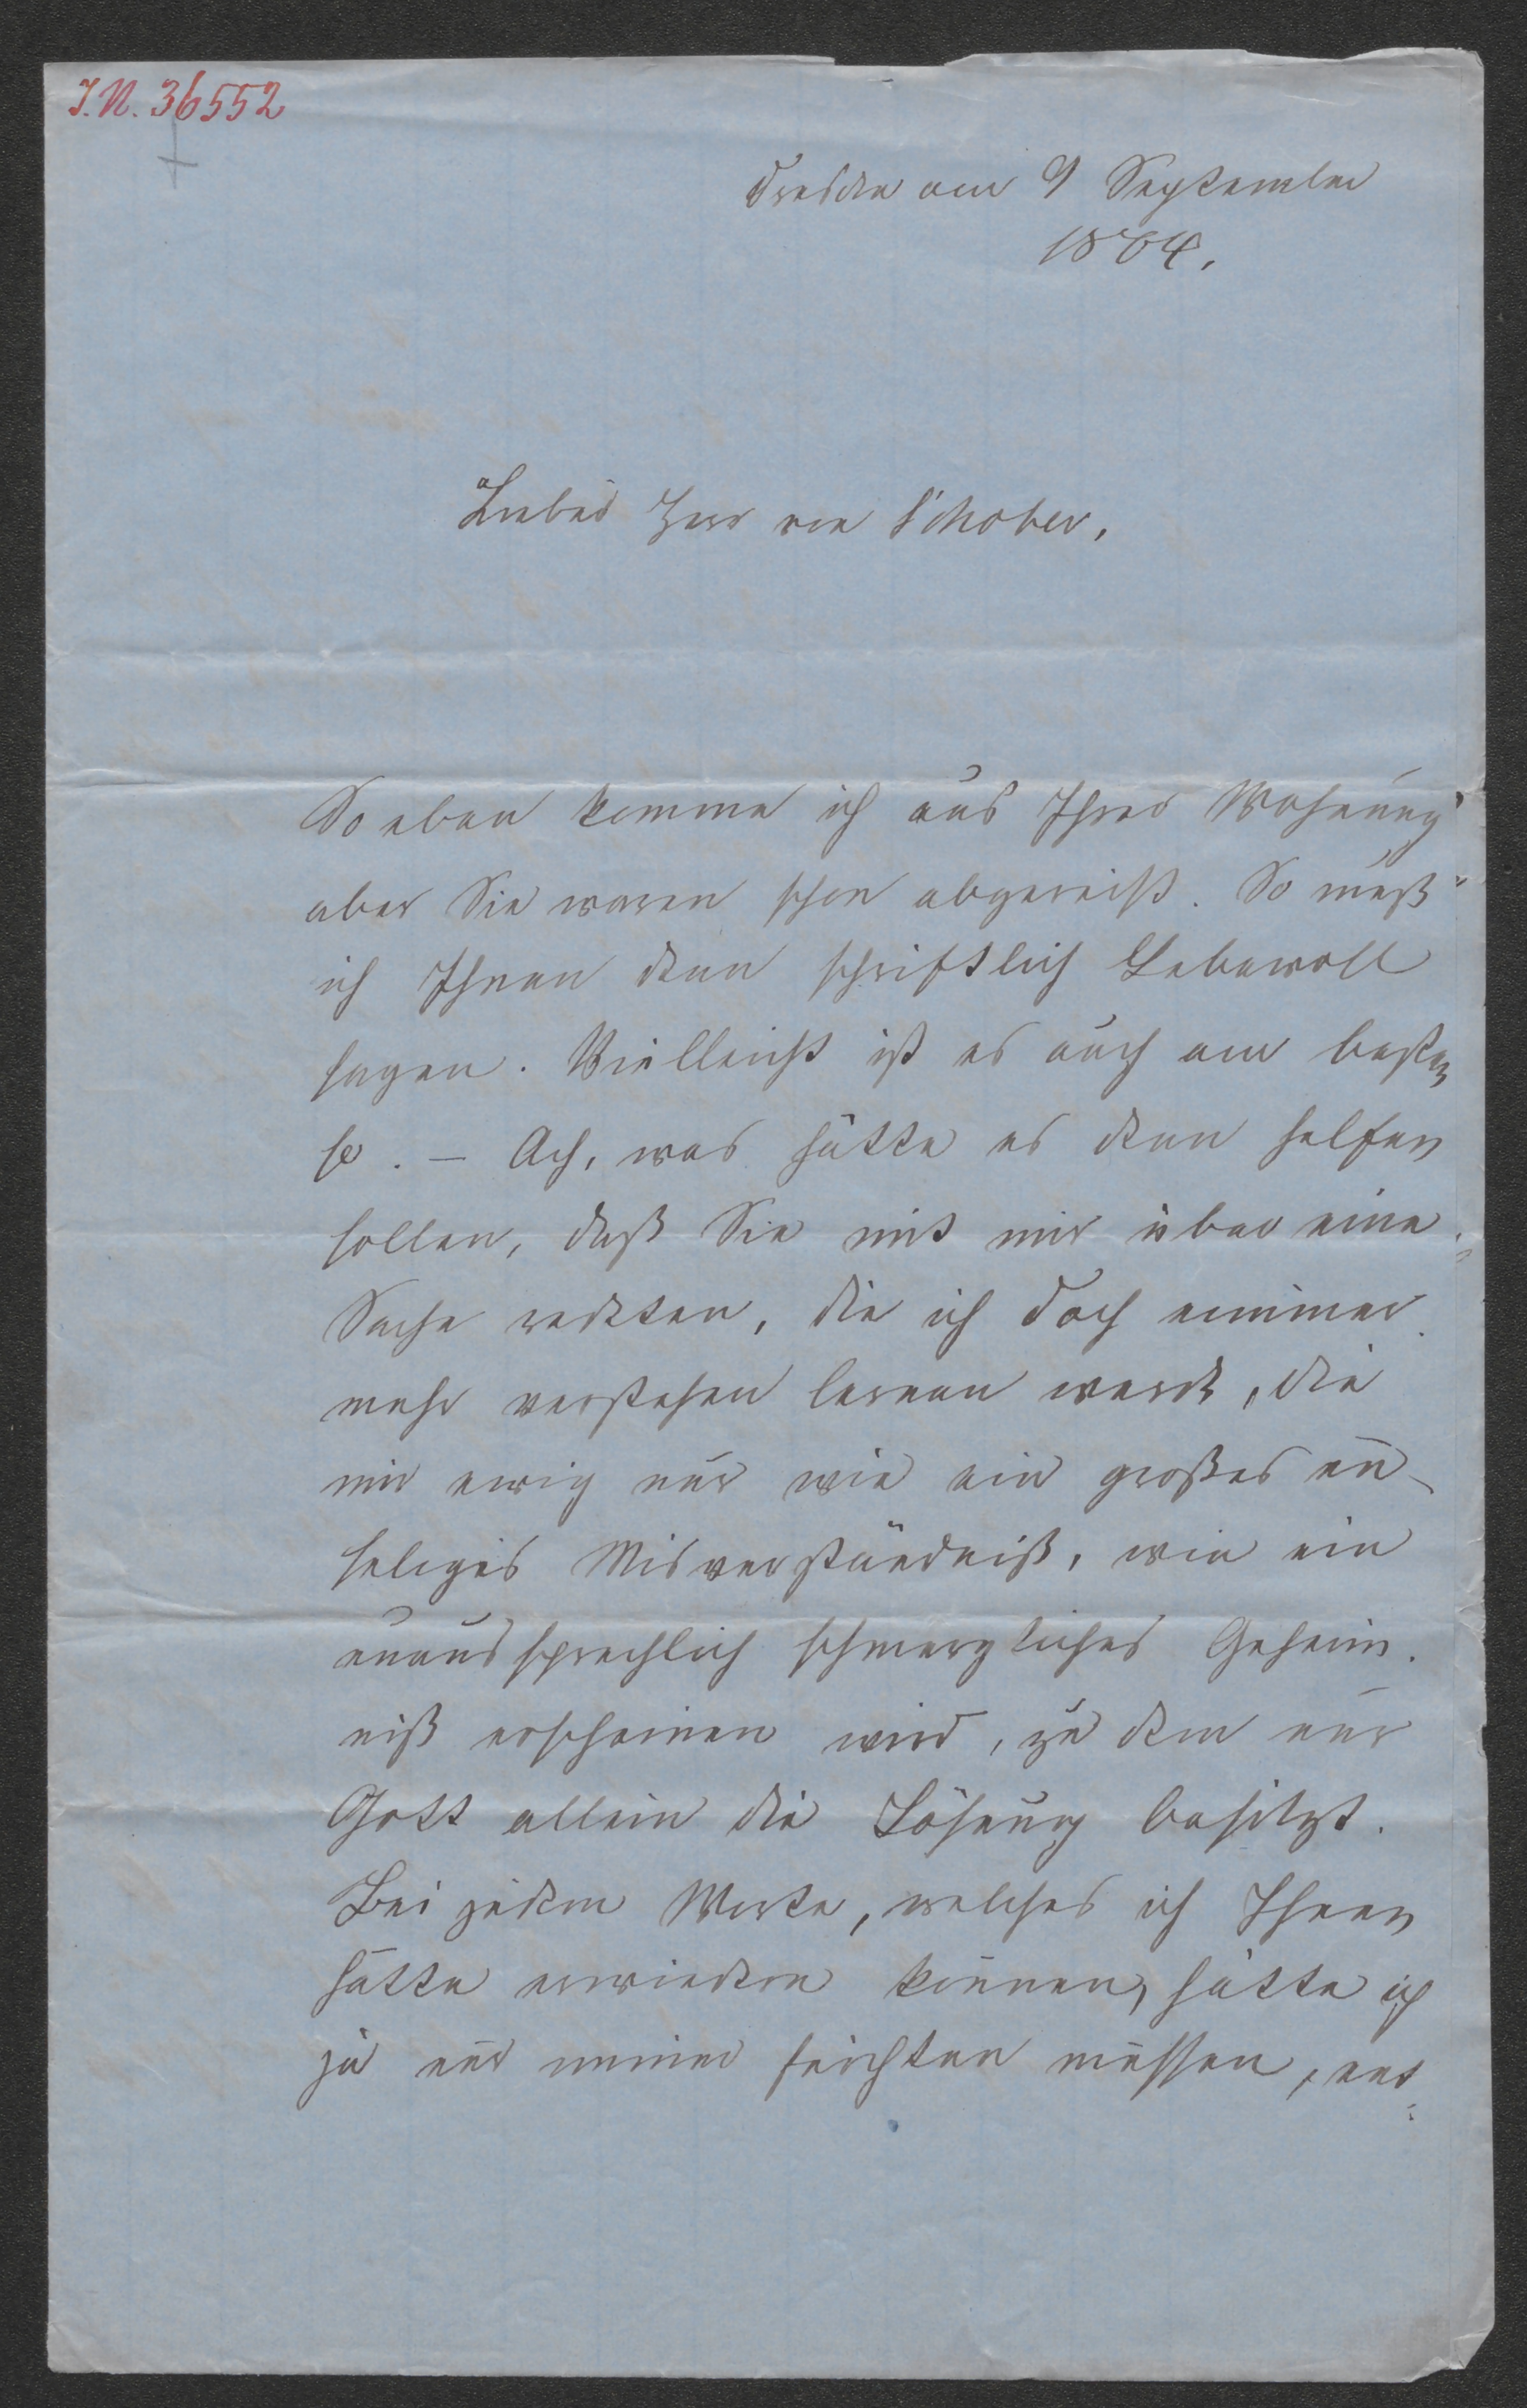 I.N. 36552
Dresden am 9 September
1864.
Lieber Herr von Schober,
So eben komme ich aus Ihrer Wohnung
aber Sie waren schon abgereist. So muß
ich Ihnen denn schriftlich Lebewoll
sagen. Vielleicht ist es auch am besten
so. – Ach, was hätte es denn helfen
sollen, daß Sie mit mir über eine
Sache redeten, die ich doch nimmer
mehr verstehen lernen werde, die
mir ewig nur wie ein großes un-
seliges Misverständniß, wie ein
unaussprechlich schmerzliches Geheim-
niß erscheinen wird, zu dem nur
Gott allein die Lösung besitzt.
Bei jedem Worte, welches ich Ihnen
hätte erwiedern können, hätte ich
ja nur immer fürchten müssen, ent-